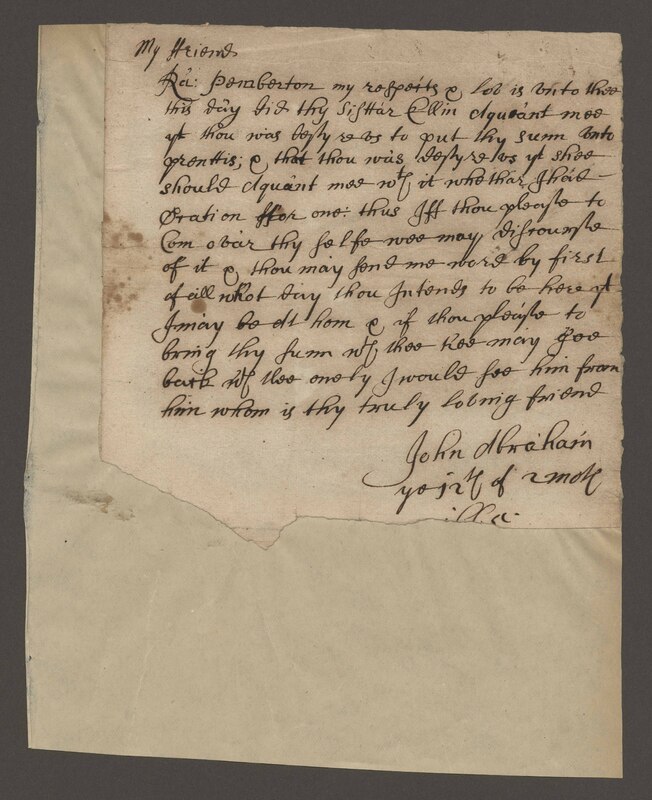 My ffriend
Ra: Pemberton my respects & lov is vnto thee
this day did thy Sisttar Ellin Aquant mee
yt thou was desyrevs to put thy sunn vnto
prenttis; & that thou was desyrevs yt shee
should Aquant mee wth it whethar I had
Ocation ffor one: thus Iff thou please to
Com ovar thy selfe wee may discourse
of it & thou may send me word by first
of all what day thou Intends to be here yt
I may be At hom & if thou please to
bring thy sunn wth thee hee may goe
back wth thee onely I would see him from
him whom is thy truly loving friend
John Abraham
ye 12th of 2 moth